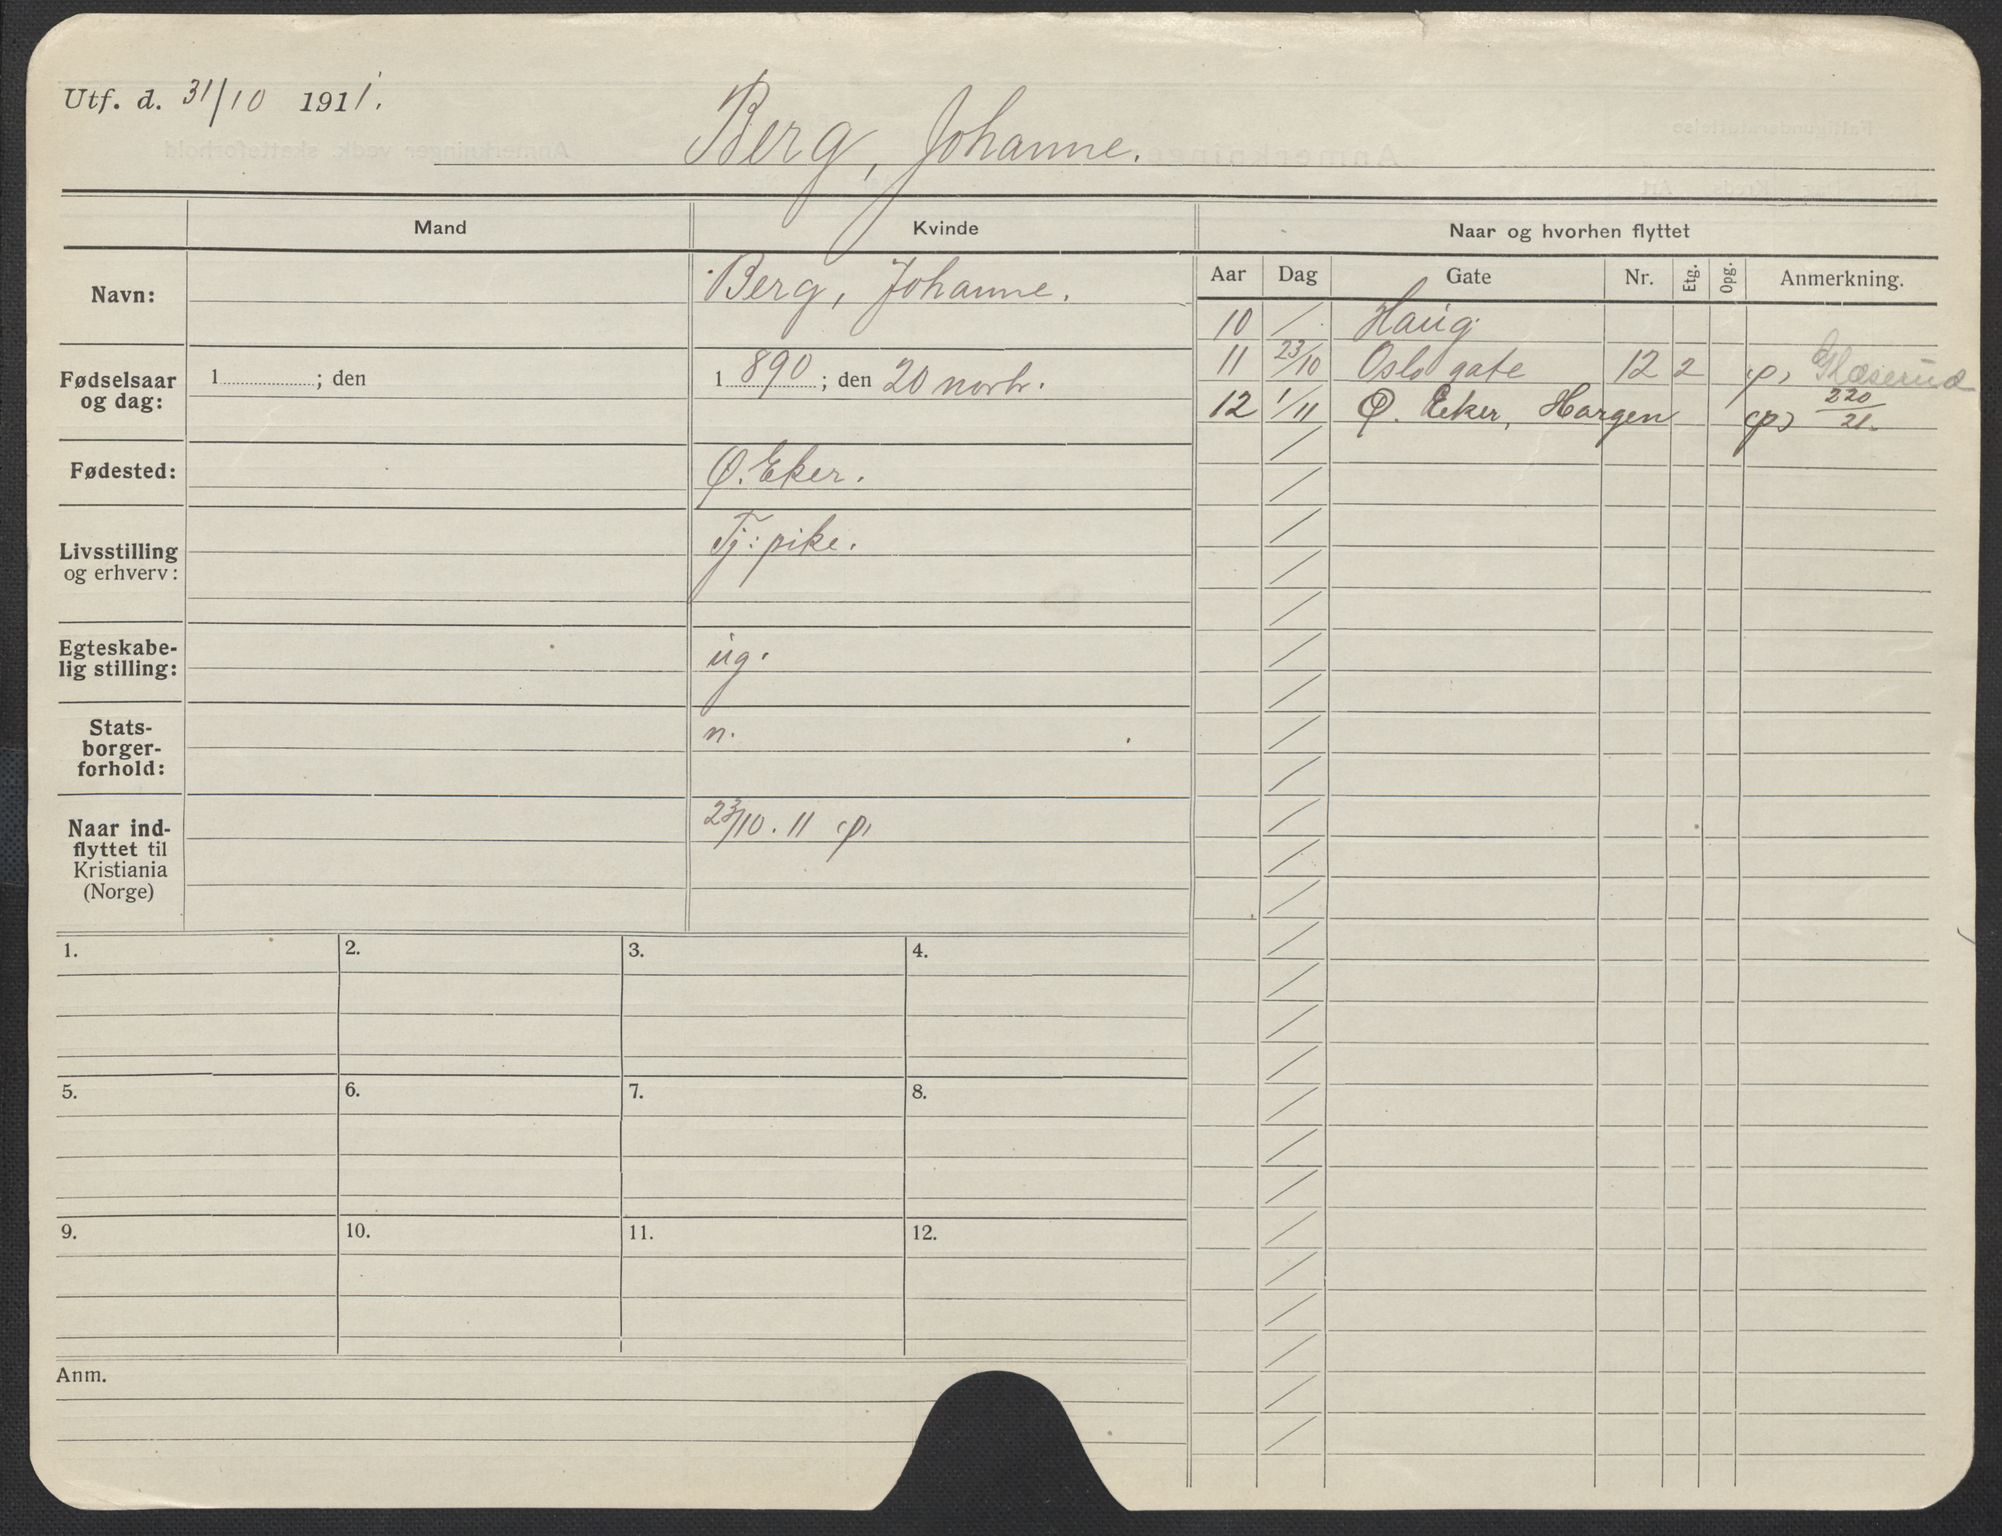 Utf. d. 31/10 1911.
Berg, Johanne.
Mand Kvinde Naar og hvorhen flyttet
Aar Dag Gate Nr. Etg. Opg. Anmerkning.
Navn: Berg, Johanne.
10 Haug
11 23/10 Oslo gate 12 2 (p) Glæserud
12 1/11 Ø. Eker, Horgen (p) 220/21.
Fødselsaar
og dag:
1 ; den
1 890 ; den 20 novbr.
Fødested: Ø. Eker.
Livsstilling
og erhverv:
Tj: pike.
Egteskabe-
lig stilling:
ug.
Stats-
borger-
forhold:
n.
Naar ind-
flyttet til
Kristiania
(Norge)
23/10. 11 (p)
1. 2. 3. 4.
5. 6. 7. 8.
9. 10. 11. 12.
Anm.